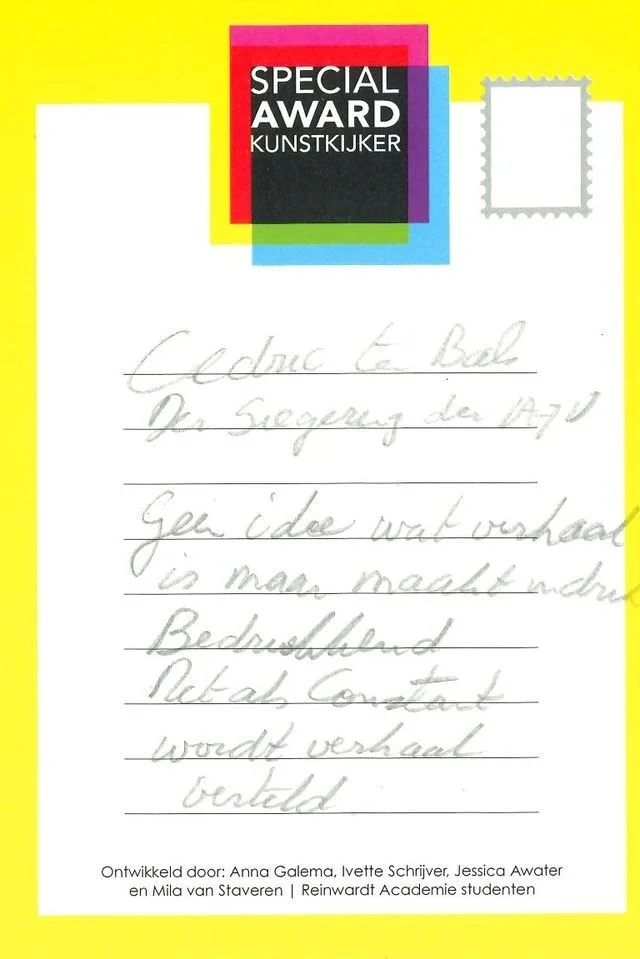 SPECIAL
AWARD
KUNSTKIJKER
Cedric te Bals
Der
Geen idee wat verhaal
is maar maakt indruk
Bedrukkend
Net als Constant
wordt verhaal
verteld
Ontwikkeld door: Anna Galema, Ivette Schrijver, Jessica Awater
en Mila van Staveren | Reinwardt Academie studenten